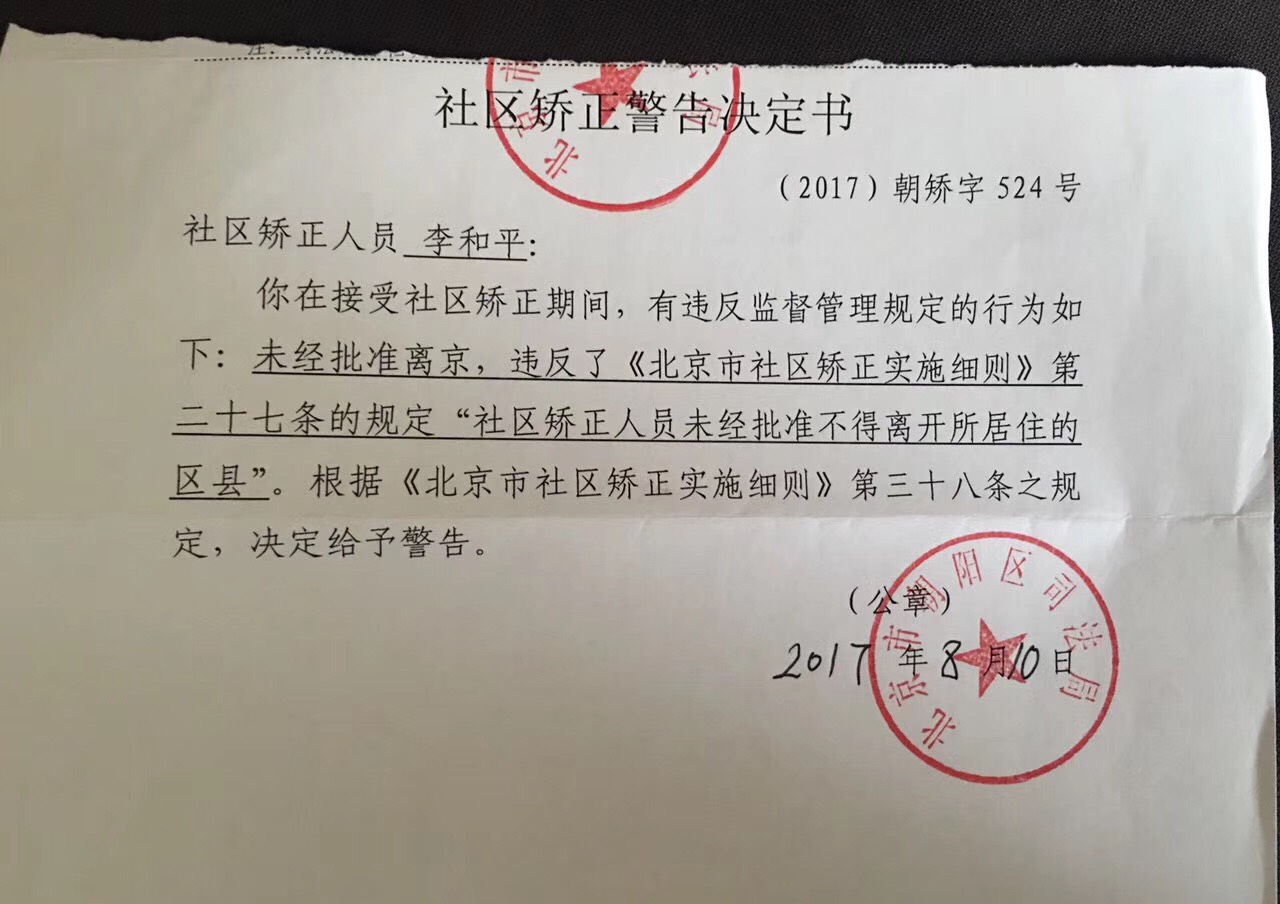 社区矫正警告决定书
（2017）朝矫字 524 号
社区矫正人员 李和平：
你在接受社区矫正期间，有违反监督管理规定的行为如
下：未经批准离京，违反了《北京市社区矫正实施细则》第
二十七条的规定“社区矫正人员未经批准不得离开所居住的
区县”。根据《北京市社区矫正实施细则》第三十八条之规
定，决定给予警告。
（公章）
2017 年 8 月 10 日
北京市朝阳区司法局